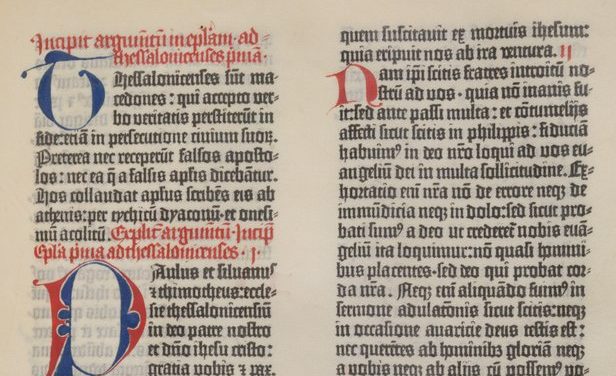 Incipit argumentū in eplam · ad
thessalonicenses p̄ma ·
Thessalonicenses sūt ma-
cedones : qui accepto ver-
bo veritatis perstiterūt in
fide: etiā in persecutione civium suoꝝ.
Preterea nec receperūt falsos aposto-
los : nec ea q̄ a falsis aplis dicebant̄.
Hos collaudat aplus scribēs eis ab
athenis: per tychicū dyaconū · et onesi-
mū acolitū. Explicit argumētū · Incipit
Epla p̄ma ad thessalonicenses · i ·
Paulus et silvanus
⁊ thimotheus: eccle-
sie thessalonicensiū
in deo patre nostro
et dn̄o ihesu cristo :
gratia vobis ⁊ pax.
quem suscitavit ex mortuis ihesum:
quia eripuit nos ab ira ventura. II
Nam ip̄i scitis fratres introitū no-
strū ad vos · quia nō inanis fu-
it: sed ante passi multa : et cōtumelijs
affecti sicut scitis in philippis : fiduciā
habuimꝰ in deo nr̄o loqui ad vos eu-
āgeliū dei in multa sollicitudine. Ex-
hortacio eni͂ nr̄a nō de errore neqꝫ de
immūdicia neqꝫ in dolo: sed sicut pro-
bati sumꝰ a deo ut crederet̄ nobis euā-
geliū ita loquimur: nō quasi homini-
bus placentes · sed deo qui probat cor-
da nr̄a. Neqꝫ eni͂ aliquādo fuimꝰ in
sermone adulatōnis sicut scitis: neqꝫ
in occasione avaricie deus testis est :
nec querētes ab hominibꝫ gloriā neqꝫ
a vobis neqꝫ ab alijs cū possemꝰ vo-